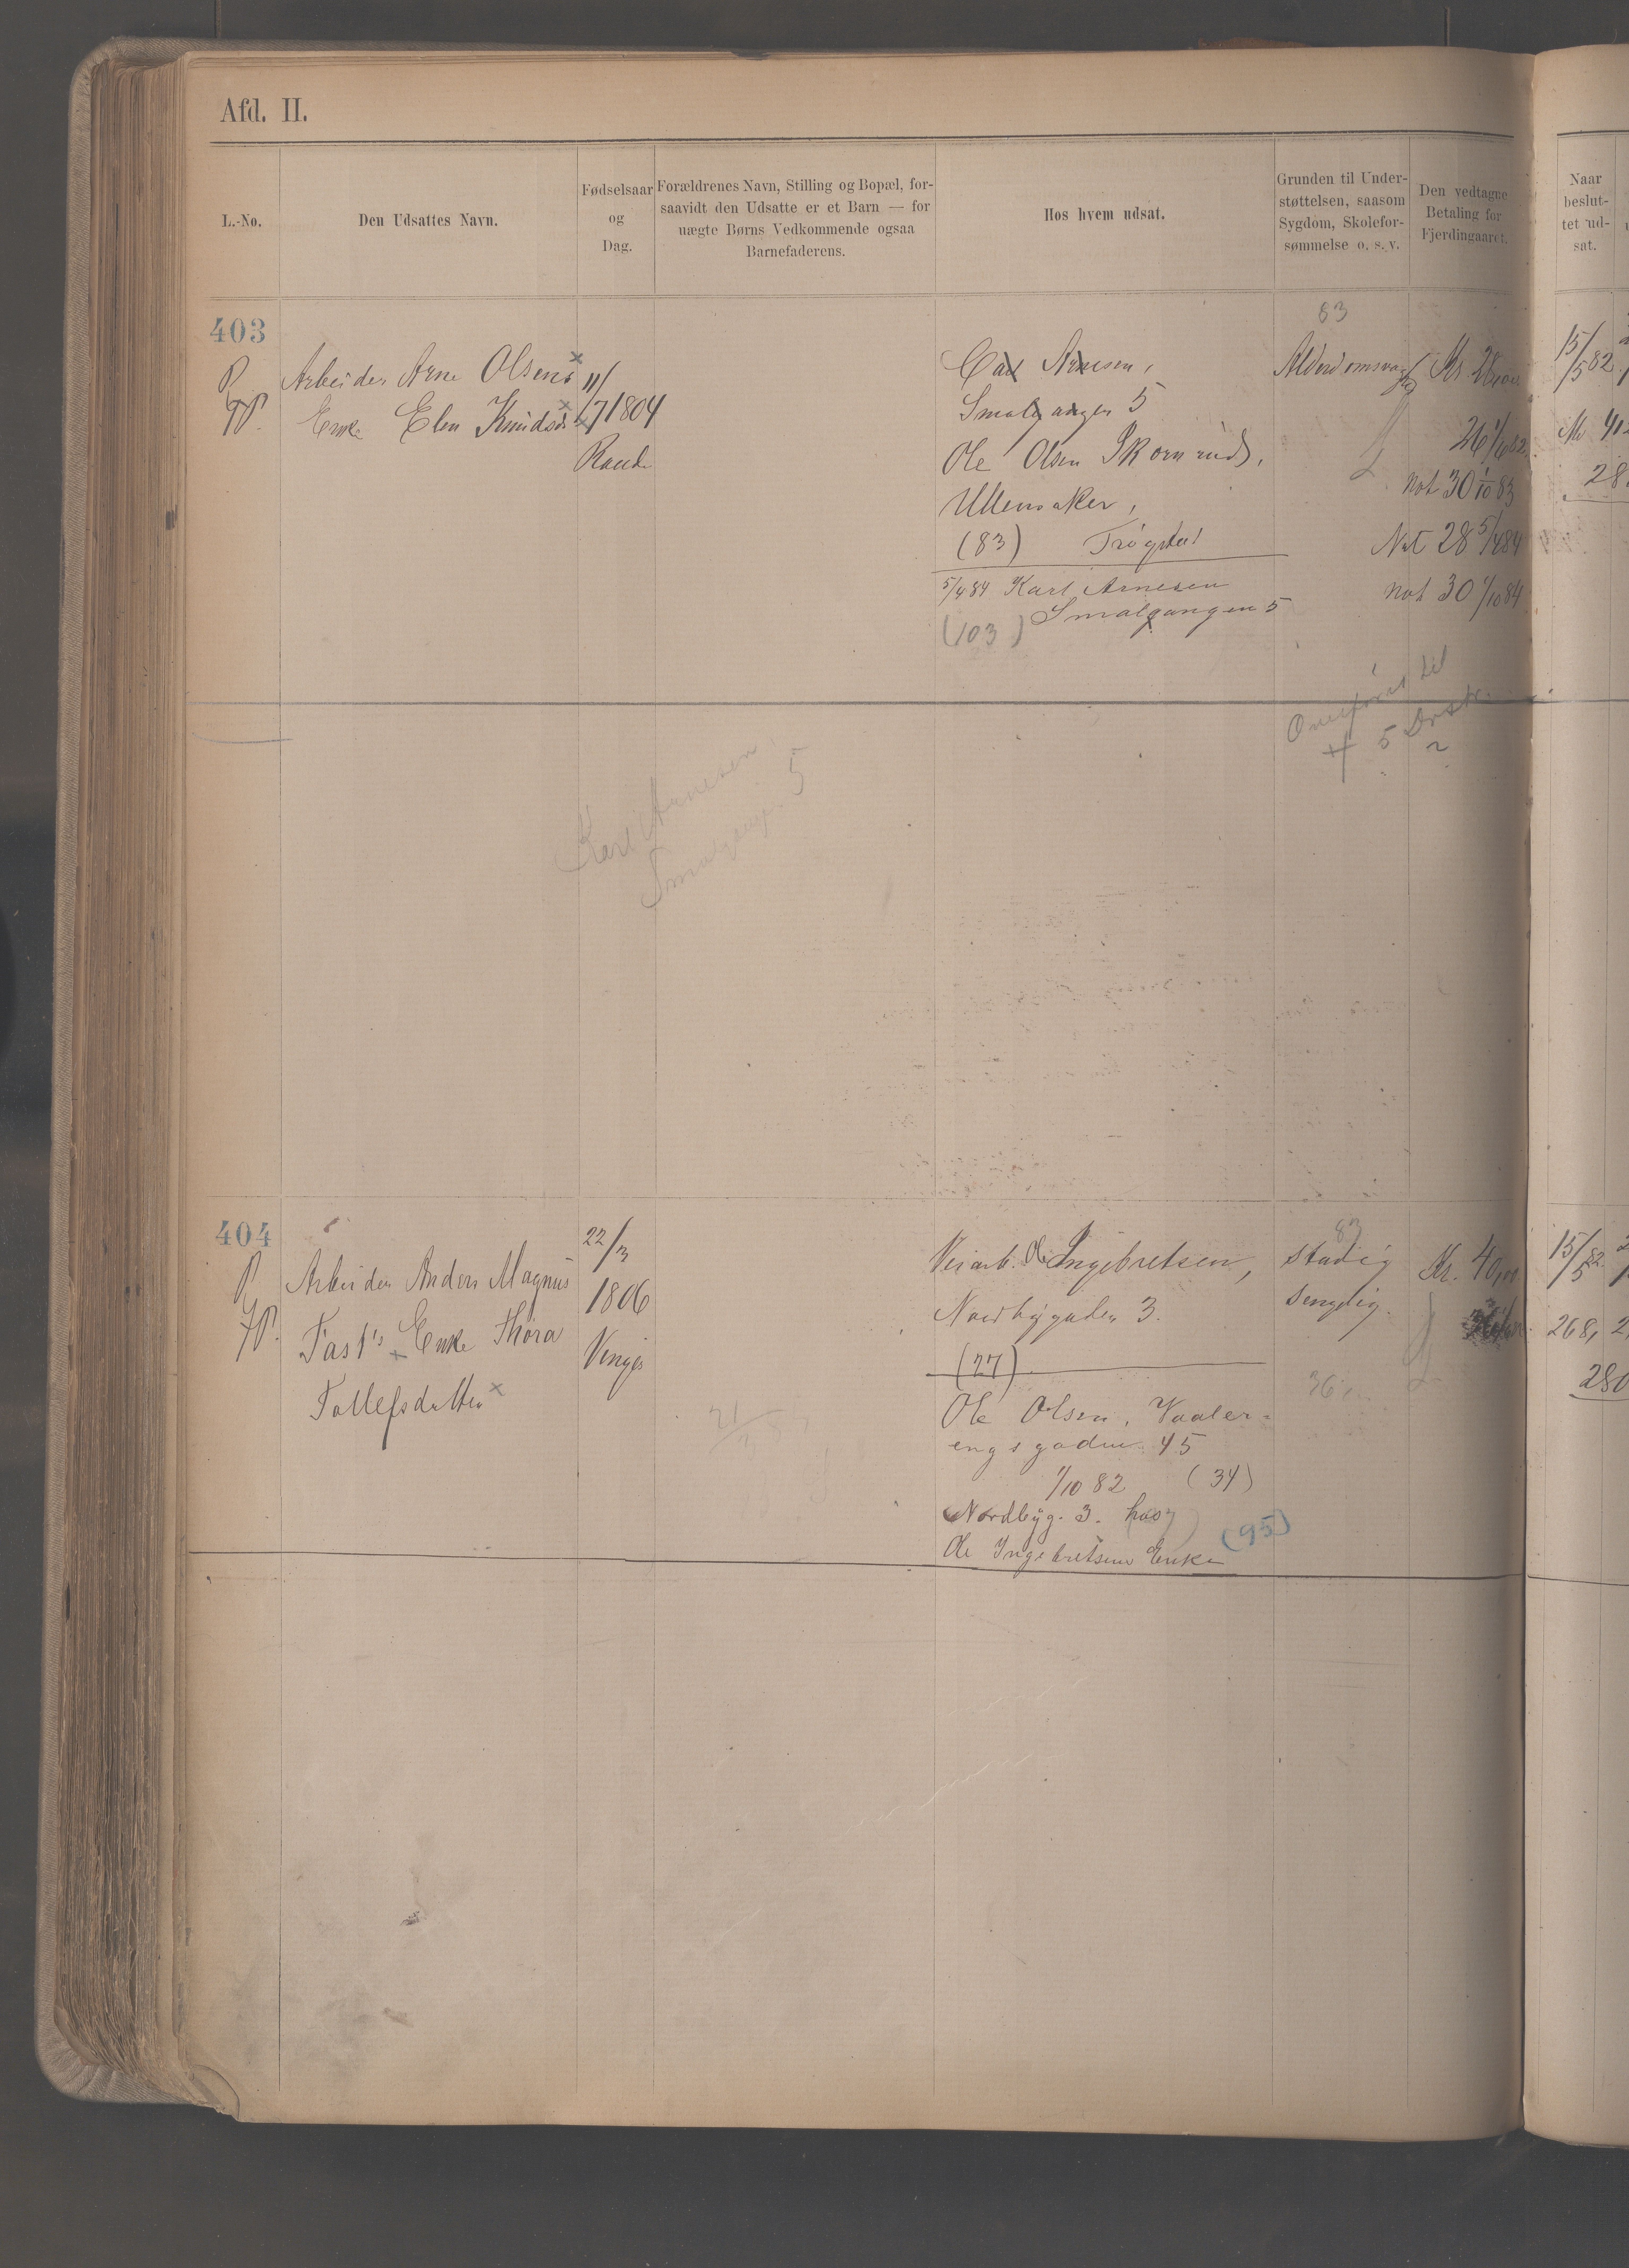 Afd. II.
L.-No.
Den Udsattes Navn.
Fødselsaar
og
Dag.
Forældrenes Navn, Stilling og Bopæl, for-
saavidt den Udsatte er et Barn — for
uægte Børns Vedkommende ogsaa
Barnefaderens.
Hos hvem udsat.
Grunden til Under-
støttelsen, saasom
Sygdom, Skolefor-
sømmelse o. s. v.
Den vedtagne
Betaling for
Fjerdingaaret.
Naar
beslut-
tet ud-
sat.
403
Arbeider Arne Olsens
Enke Elen Knudsd
11/
7 1804
Raade
Carl Arnesen,
Smalgangen 5
Ole Olsen Skornrud,
Ullensaker,
(83) Trøgstad
5/4 84 Karl Arnesen
Smalgangen 5
(103)
83
Alderdomssvag
Kr. 28,00
26 1/6 82
Not 30 1/10 83
Not 28 5/4 84
Not 30 1/10 84
15/5 82
28
Overført til
5 Distr.
Karl Arnesen,
Smalgangen 5
404
Arbeider Anders Magnus
Fast's Enke Thora
Tollefsdatter
22/3
1806
Vinger
Veiarb. Ole Ingebretsen,
Nordbygaden 3.
(27)
Ole Olsen, Vaaler-
engsgaden 45
1/10 82 (34)
Nordbyg. 3. hos
Ole Ingebretsens Enke
(95)
83
stadig
sengelig.
Kr. 40,00
36
15/5 82
268,
280